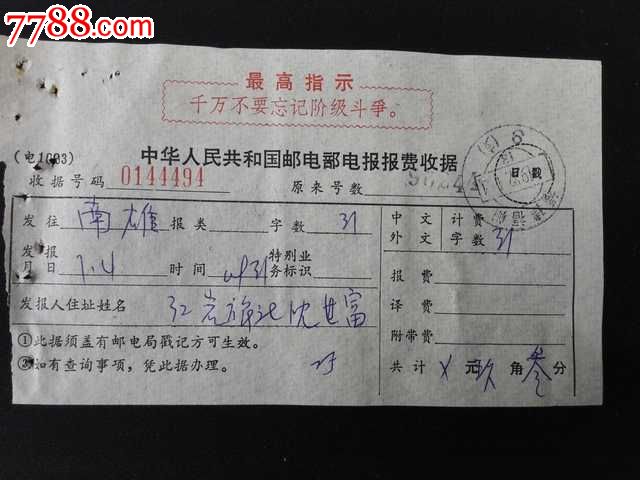 7788.com
最高指示
千万不要忘记阶级斗争。
(电1003)
中华人民共和国邮电部电报报费收据
收据号码 0144494 原来号数
发往 南雄 报类 字数 31
中文 计费
外文 字数 31
发报
月日 7.4 时间 特别业
务标识
报费
译费
发报人住址姓名 红岩旅社沈其富
附带费
①此据须盖有邮电局戳记方可生效。
②如有查询事项，凭此据办理。
共计 × 元 玖 角 叁 分